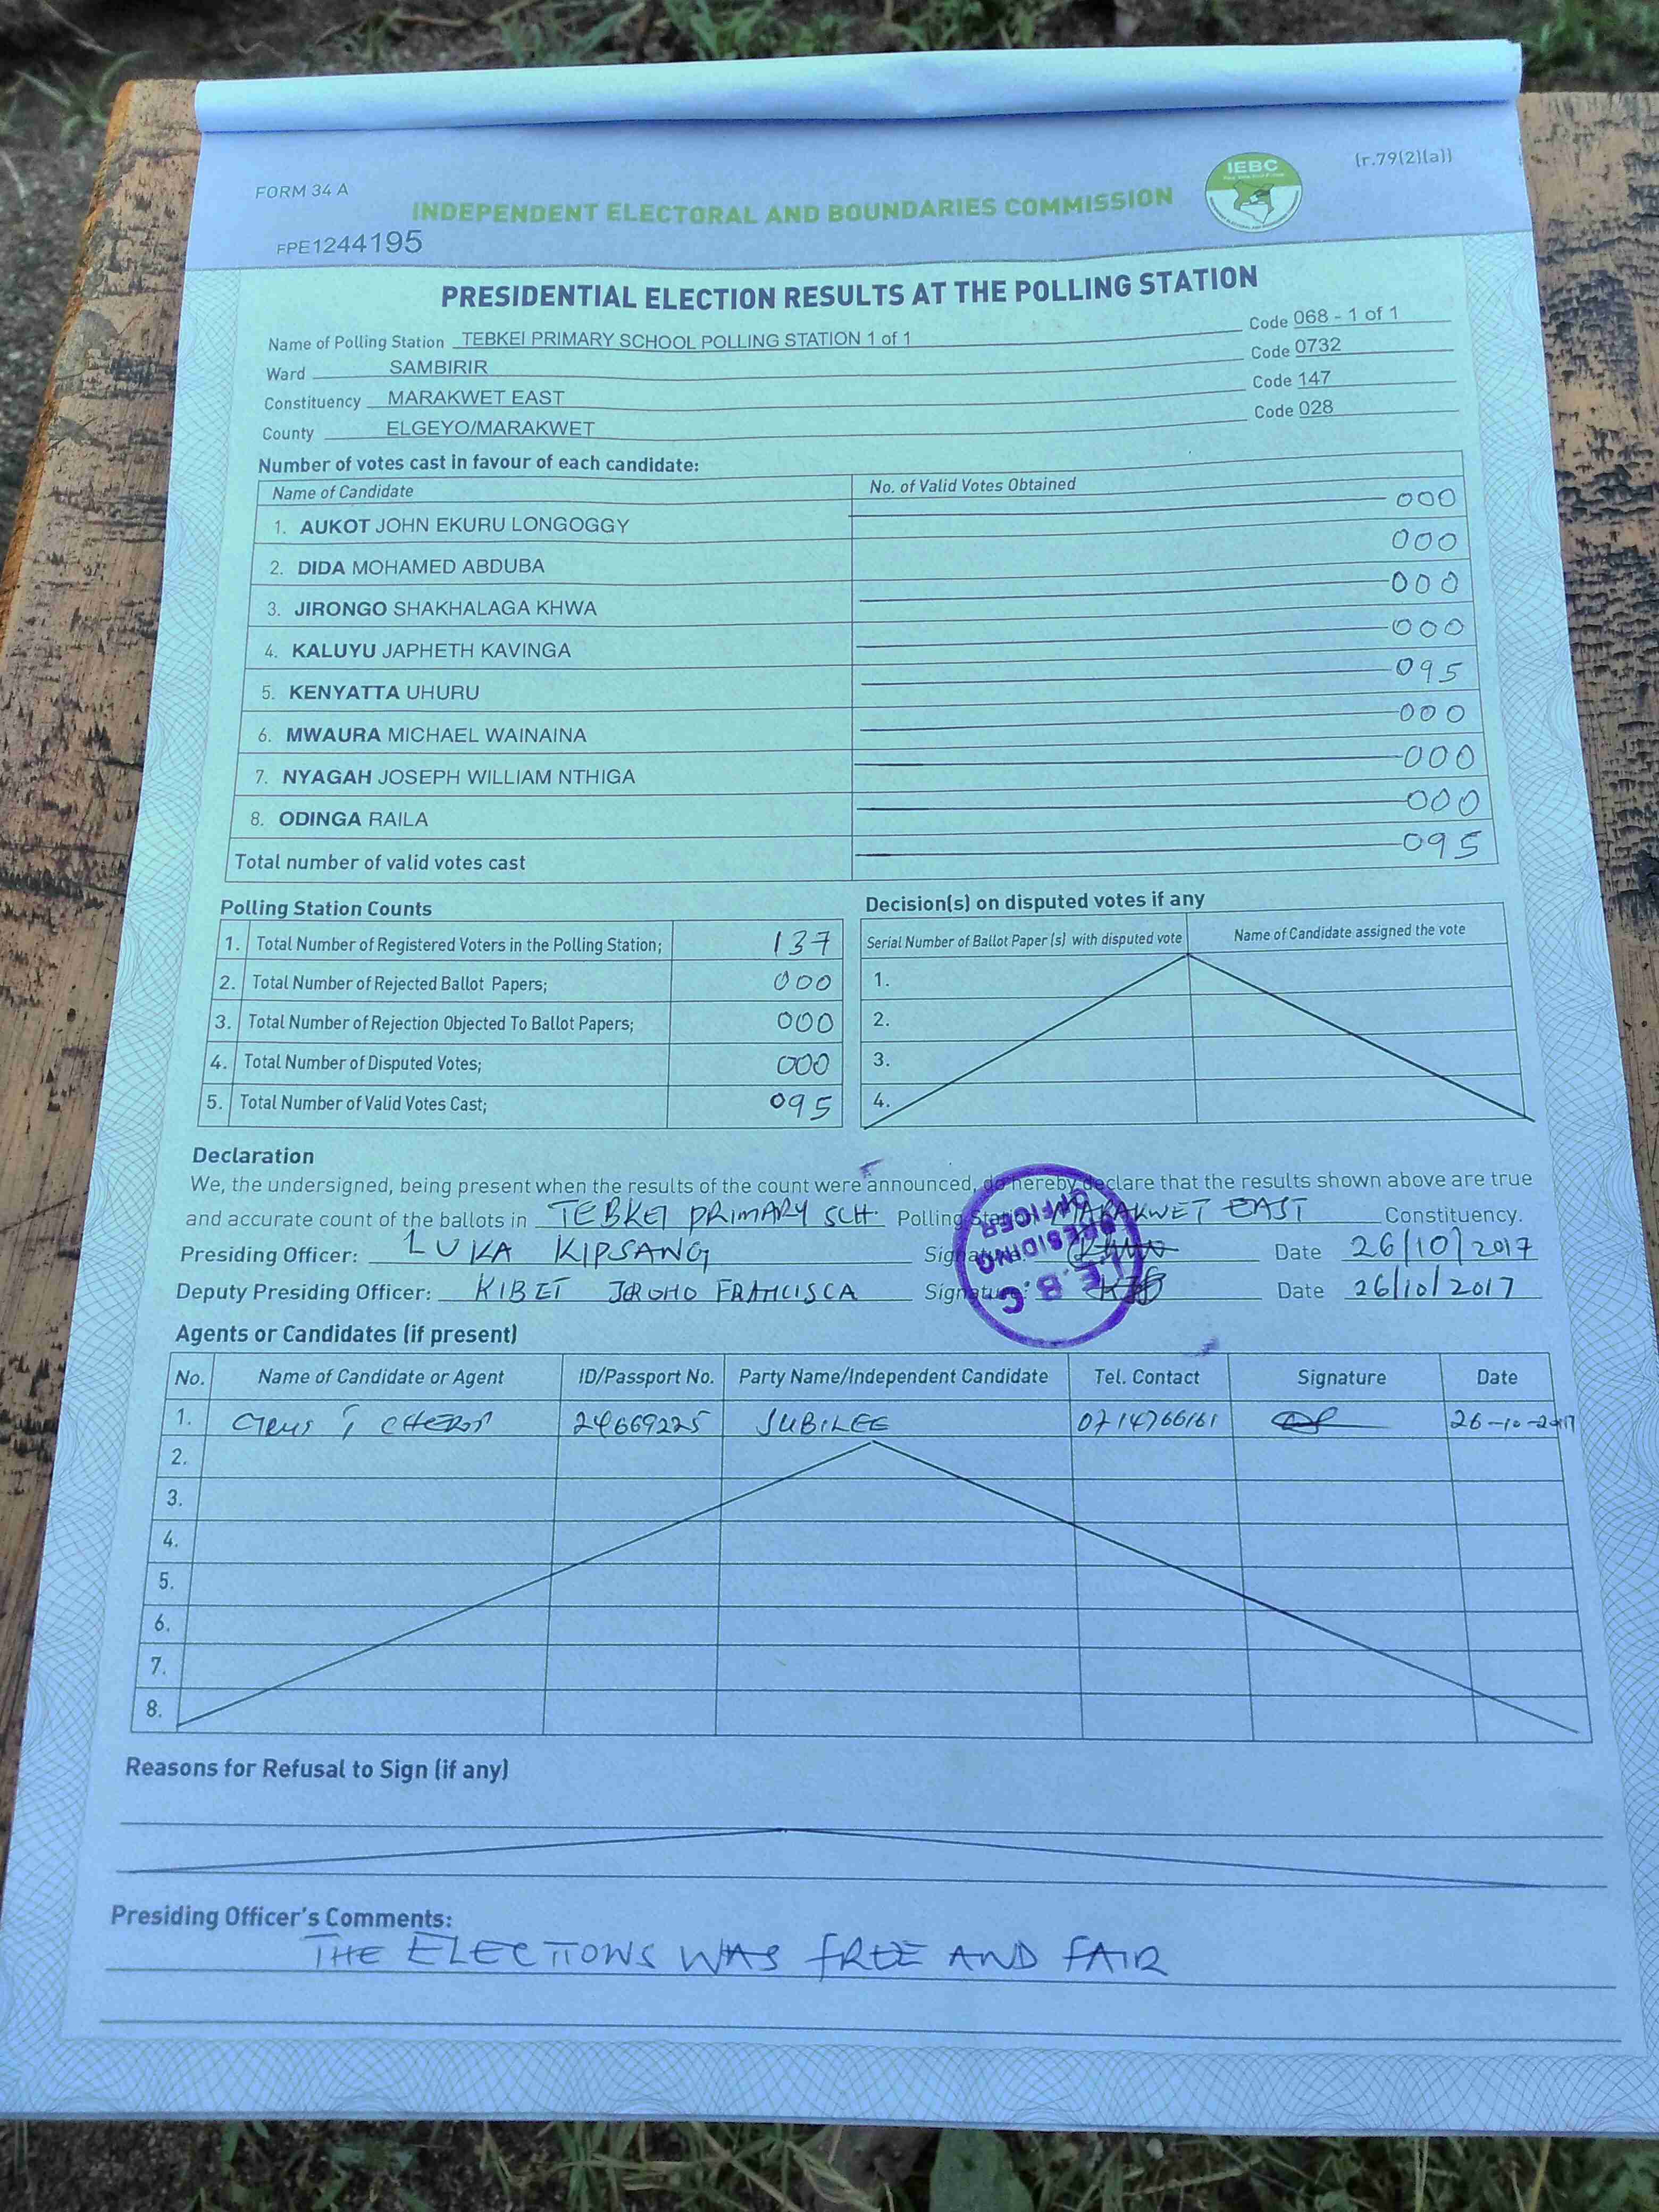 FORM 34 A
IEBC
(r.79(2)(a))
INDEPENDENT ELECTORAL AND BOUNDARIES COMMISSION
FPE1244195
PRESIDENTIAL ELECTION RESULTS AT THE POLLING STATION
Name of Polling Station TEBKEI PRIMARY SCHOOL POLLING STATION 1 of 1 Code 068 - 1 of 1
Ward SAMBIRIR Code 0732
Constituency MARAKWET EAST Code 147
County ELGEYO/MARAKWET Code 028
Number of votes cast in favour of each candidate:
Name of Candidate No. of Valid Votes Obtained
1. AUKOT JOHN EKURU LONGOGGY 000
2. DIDA MOHAMED ABDUBA 000
3. JIRONGO SHAKHALAGA KHWA 000
4. KALUYU JAPHETH KAVINGA 000
5. KENYATTA UHURU 095
6. MWAURA MICHAEL WAINAINA 000
7. NYAGAH JOSEPH WILLIAM NTHIGA 000
8. ODINGA RAILA 000
Total number of valid votes cast 095
Polling Station Counts
1. Total Number of Registered Voters in the Polling Station; 137
2. Total Number of Rejected Ballot Papers; 000
3. Total Number of Rejection Objected To Ballot Papers; 000
4. Total Number of Disputed Votes; 000
5. Total Number of Valid Votes Cast; 095
Decision(s) on disputed votes if any
Serial Number of Ballot Paper (s) with disputed vote Name of Candidate assigned the vote
1.
2.
3.
4.
Declaration
We, the undersigned, being present when the results of the count were announced, do hereby declare that the results shown above are true
and accurate count of the ballots in TEBKEI PRIMARY SCH. Polling Station MARAKWET EAST Constituency.
Presiding Officer: LUKA KIPSANG Signature: Date 26/10/2017
Deputy Presiding Officer: KIBET JEROHO FRANCISCA Signature: Date 26/10/2017
I.E.B.C
PRESIDING
OFFICER
Agents or Candidates (if present)
No. Name of Candidate or Agent ID/Passport No. Party Name/Independent Candidate Tel. Contact Signature Date
1. 24669225 JUBILEE 0714766161 26-10-2017
2.
3.
4.
5.
6.
7.
8.
Reasons for Refusal to Sign (if any)
Presiding Officer's Comments:
THE ELECTIONS WAS FREE AND FAIR